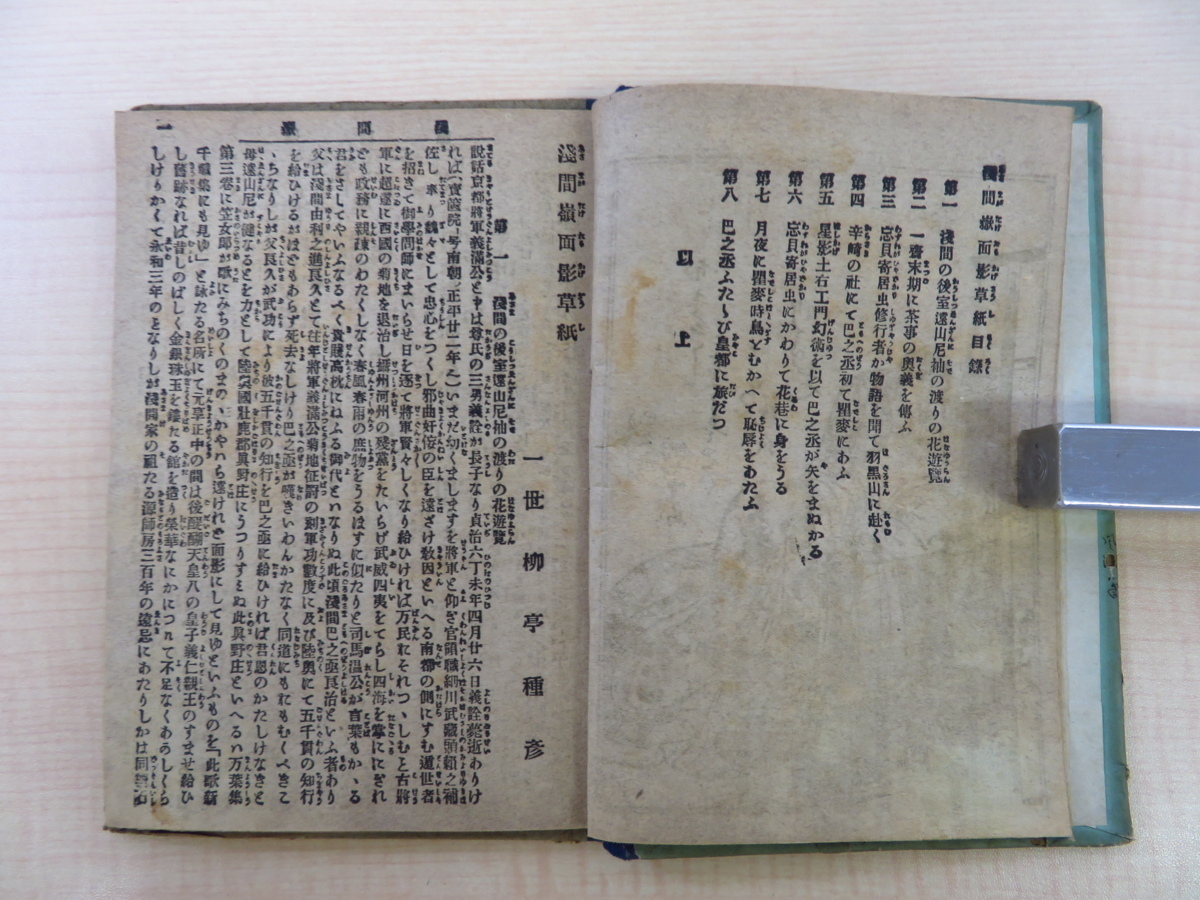 淺間嶽面影草紙目錄
第一　淺間の後室遠山尼袖の渡りの花遊覽
第二　一齋末期に茶事の奧義を傳ふ
第三　忘貝寄居虫修行者か物語を聞て羽黑山に赴く
第四　辛崎の社にて巴之丞初て瞿麥にあふ
第五　星影土右エ門幻術を以て巴之丞が矢をまぬかる
第六　忘貝寄居虫にかわりて花巷に身をうる
第七　月夜に瞿麥時鳥とむかへて恥辱をあたふ
第八　巴之丞ふたゝび皇都に旅だつ
以上
淺間嶽面影草紙
一世　柳亭種彦
第一　淺間の後室遠山尼袖の渡りの花遊覽
說話京都將軍義滿公と申は尊氏の三男義詮が長子なり貞治六丁未年四月廿六日義詮薨逝ありけ
れば(寶篋院と号南朝正平廿二年)いまだ幼くましますを將軍と仰ぎ官領職細川武藏頭賴之補
佐し奉り巍々として忠心をつくし邪曲奸佞の臣を遠ざけ敎因といへる南都の側にすむ遁世者
を招きて御學問師にまいらせ日を逐て將軍賢々しくなり給ひければ万民それつゝしむと古將
軍に超遠に西國の菊地を退治し播州河州の殘黨をたいらげ武威四夷をてらし四海を掌ににぎれ
ども政務に親疎のわたくしなく春風春雨の庶物をうるほすに似たりと司馬温公が言葉もかゝる
君をさしてやいふなるべく貴賤高枕にねふる御代といなりぬ此頃淺間巴之丞良治といふ者あり
父は淺間由利之進良久とて往年將軍義滿公菊地征罸の刻軍功數度に及び陸奧にて五千貫の知行
を給ひけるがほどもあらず死去なしけり巴之丞が嘆きいわんかたなく同道にもれもむくべきこ
ゝちなりしが父良久が武功により彼五千貫の知行を巴之丞に給ひければ君恩のかたじけなきと
母遠山尼が健なるとを力として陸奧國牡鹿郡眞野庄にうつりすまぬ此眞野庄といへるハ万葉集
第三卷に笠女郎が歌にみちのくのまのゝかやハら遠けれど面影にして見ゆといふものを「此歌新
千載集にも見ゆ」と詠たる名所にて元享正中の間は後醍醐天皇八の皇子義仁親王のすませ給ひ
し舊跡なれば昔しのばしく金銀珠玉を鏤たる館を造り榮華なにかにつれて不足なくあゐしくら
しけりかくて永和三年のとなりしが淺間家の祖たる源師房三百年の遠忌にあたりしかは同
一